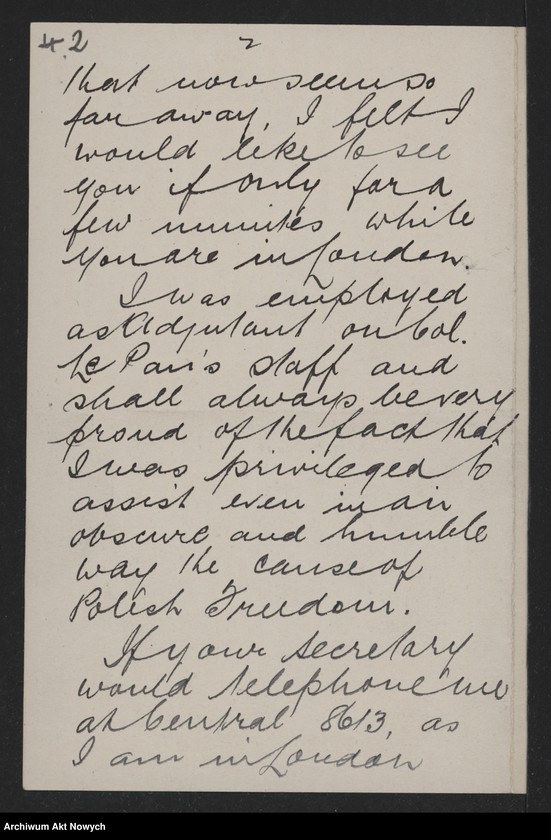 42
2
that now seem so
far away, I felt I
would like to see
you if only for a
few minutes while
you are in London.
I was employed
as Adjutant on Col.
Le Pan's staff and
shall always be very
proud of the fact that
I was privileged to
assist even in an
obscure and humble
way the cause of
Polish Freedom.
If your secretary
would telephone me
at Central 8613, as
I am in London
Archiwum Akt Nowych